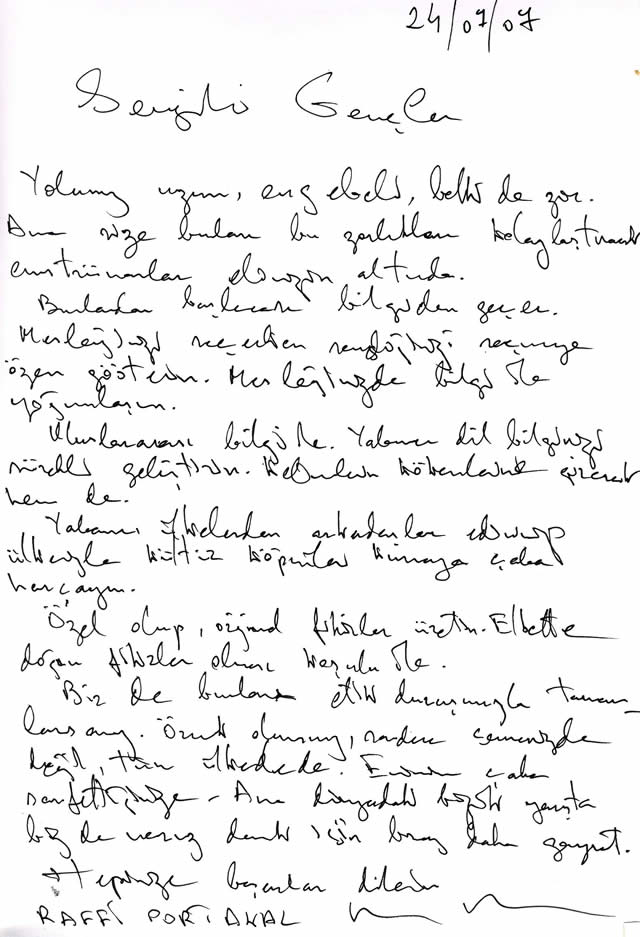 24/07/07
Sevgili Gençler
Yolumuz uzun, engebeli, belki de zor.
Ama size bunları bu zorlukları kolaylaştıracak
enstrümanlar elinizin altında.
Bunlardan başlıcası bilgiden geçer.
Mesleğinizi seçerken sevdiğinizi seçmeye
özen gösterin. Mesleğinizde bilgi ile
yoğunlaşın.
Uluslararası bilgi ile. Yabancı dil bilginizi
sürekli geliştirin. Kelimelerin kökenlerine
hem de.
Yabancı ülkelerden arkadaşlar edinip
ülkenizle kültür köprüleri kurmaya çaba
harcayın.
Özel olup, özgün fikirler üretin. Elbette
doğru fikirler olması koşulu ile.
Biz de bunları etik duruşumuzla tamam-
larsanız. Örnek olursunuz, sadece çevrenizde
değil, tüm ülkede de. Eminim çaba
sarfettiğinize - Ama dünyadaki büyük yarışta
biz de varız demek için biraz daha gayret.
Hepinize başarılar dilerim
RAFFİ PORTAKAL